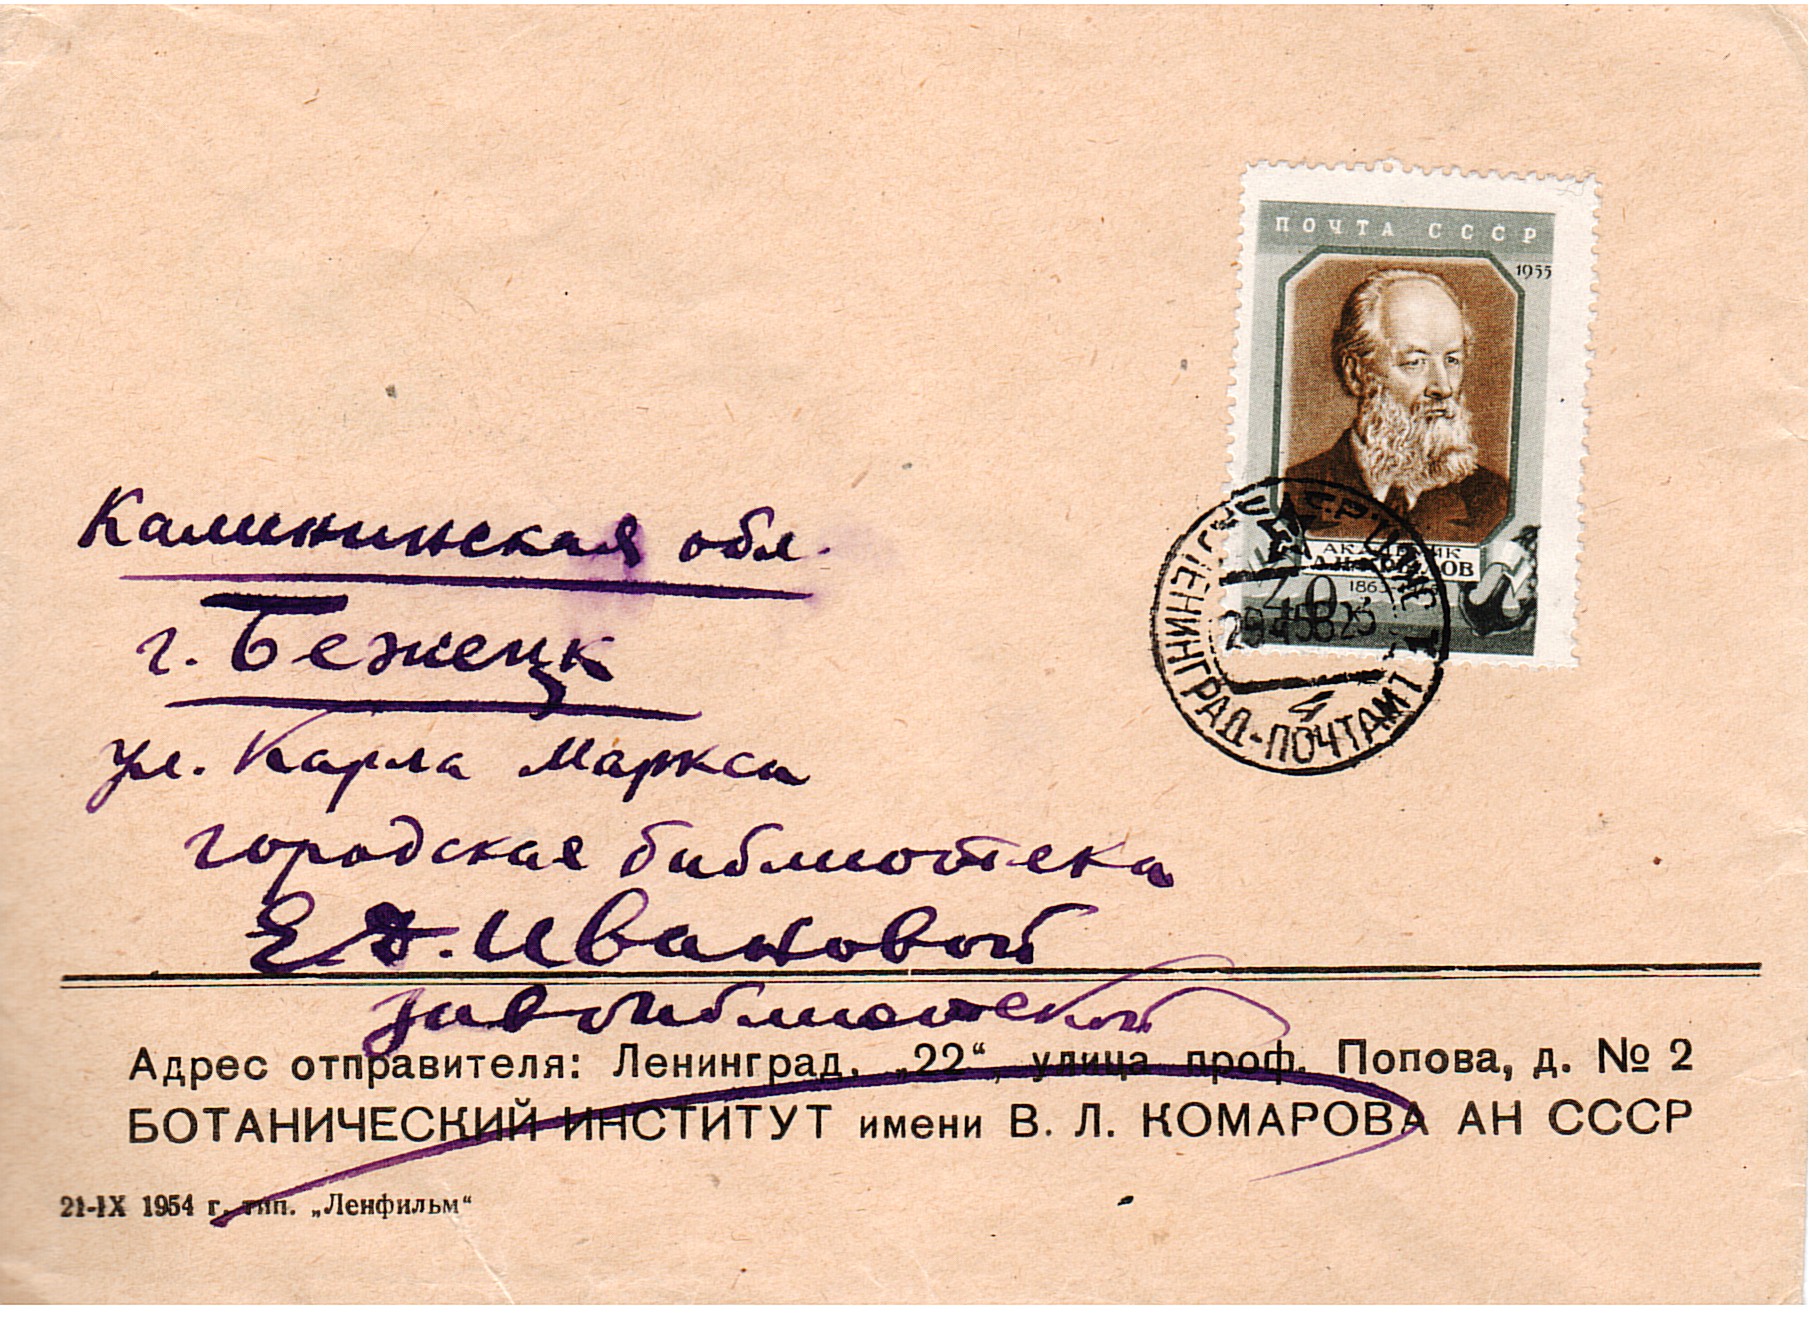 ПОЧТА СССР
1955
АКАДЕМИК
А.Н.КРЫЛОВ
ЛЕНИНГРАД-ПОЧТАМТ 1
Калининская обл.
г. Бежецк
ул. Карла Маркса
городская библиотека
Е.Д. Ивановой
завбиблиотекой
Адрес отправителя: Ленинград, „22“, улица проф. Попова, д. № 2
БОТАНИЧЕСКИЙ ИНСТИТУТ имени В. Л. КОМАРОВА АН СССР
21-IX 1954 г. тип. „Ленфильм“